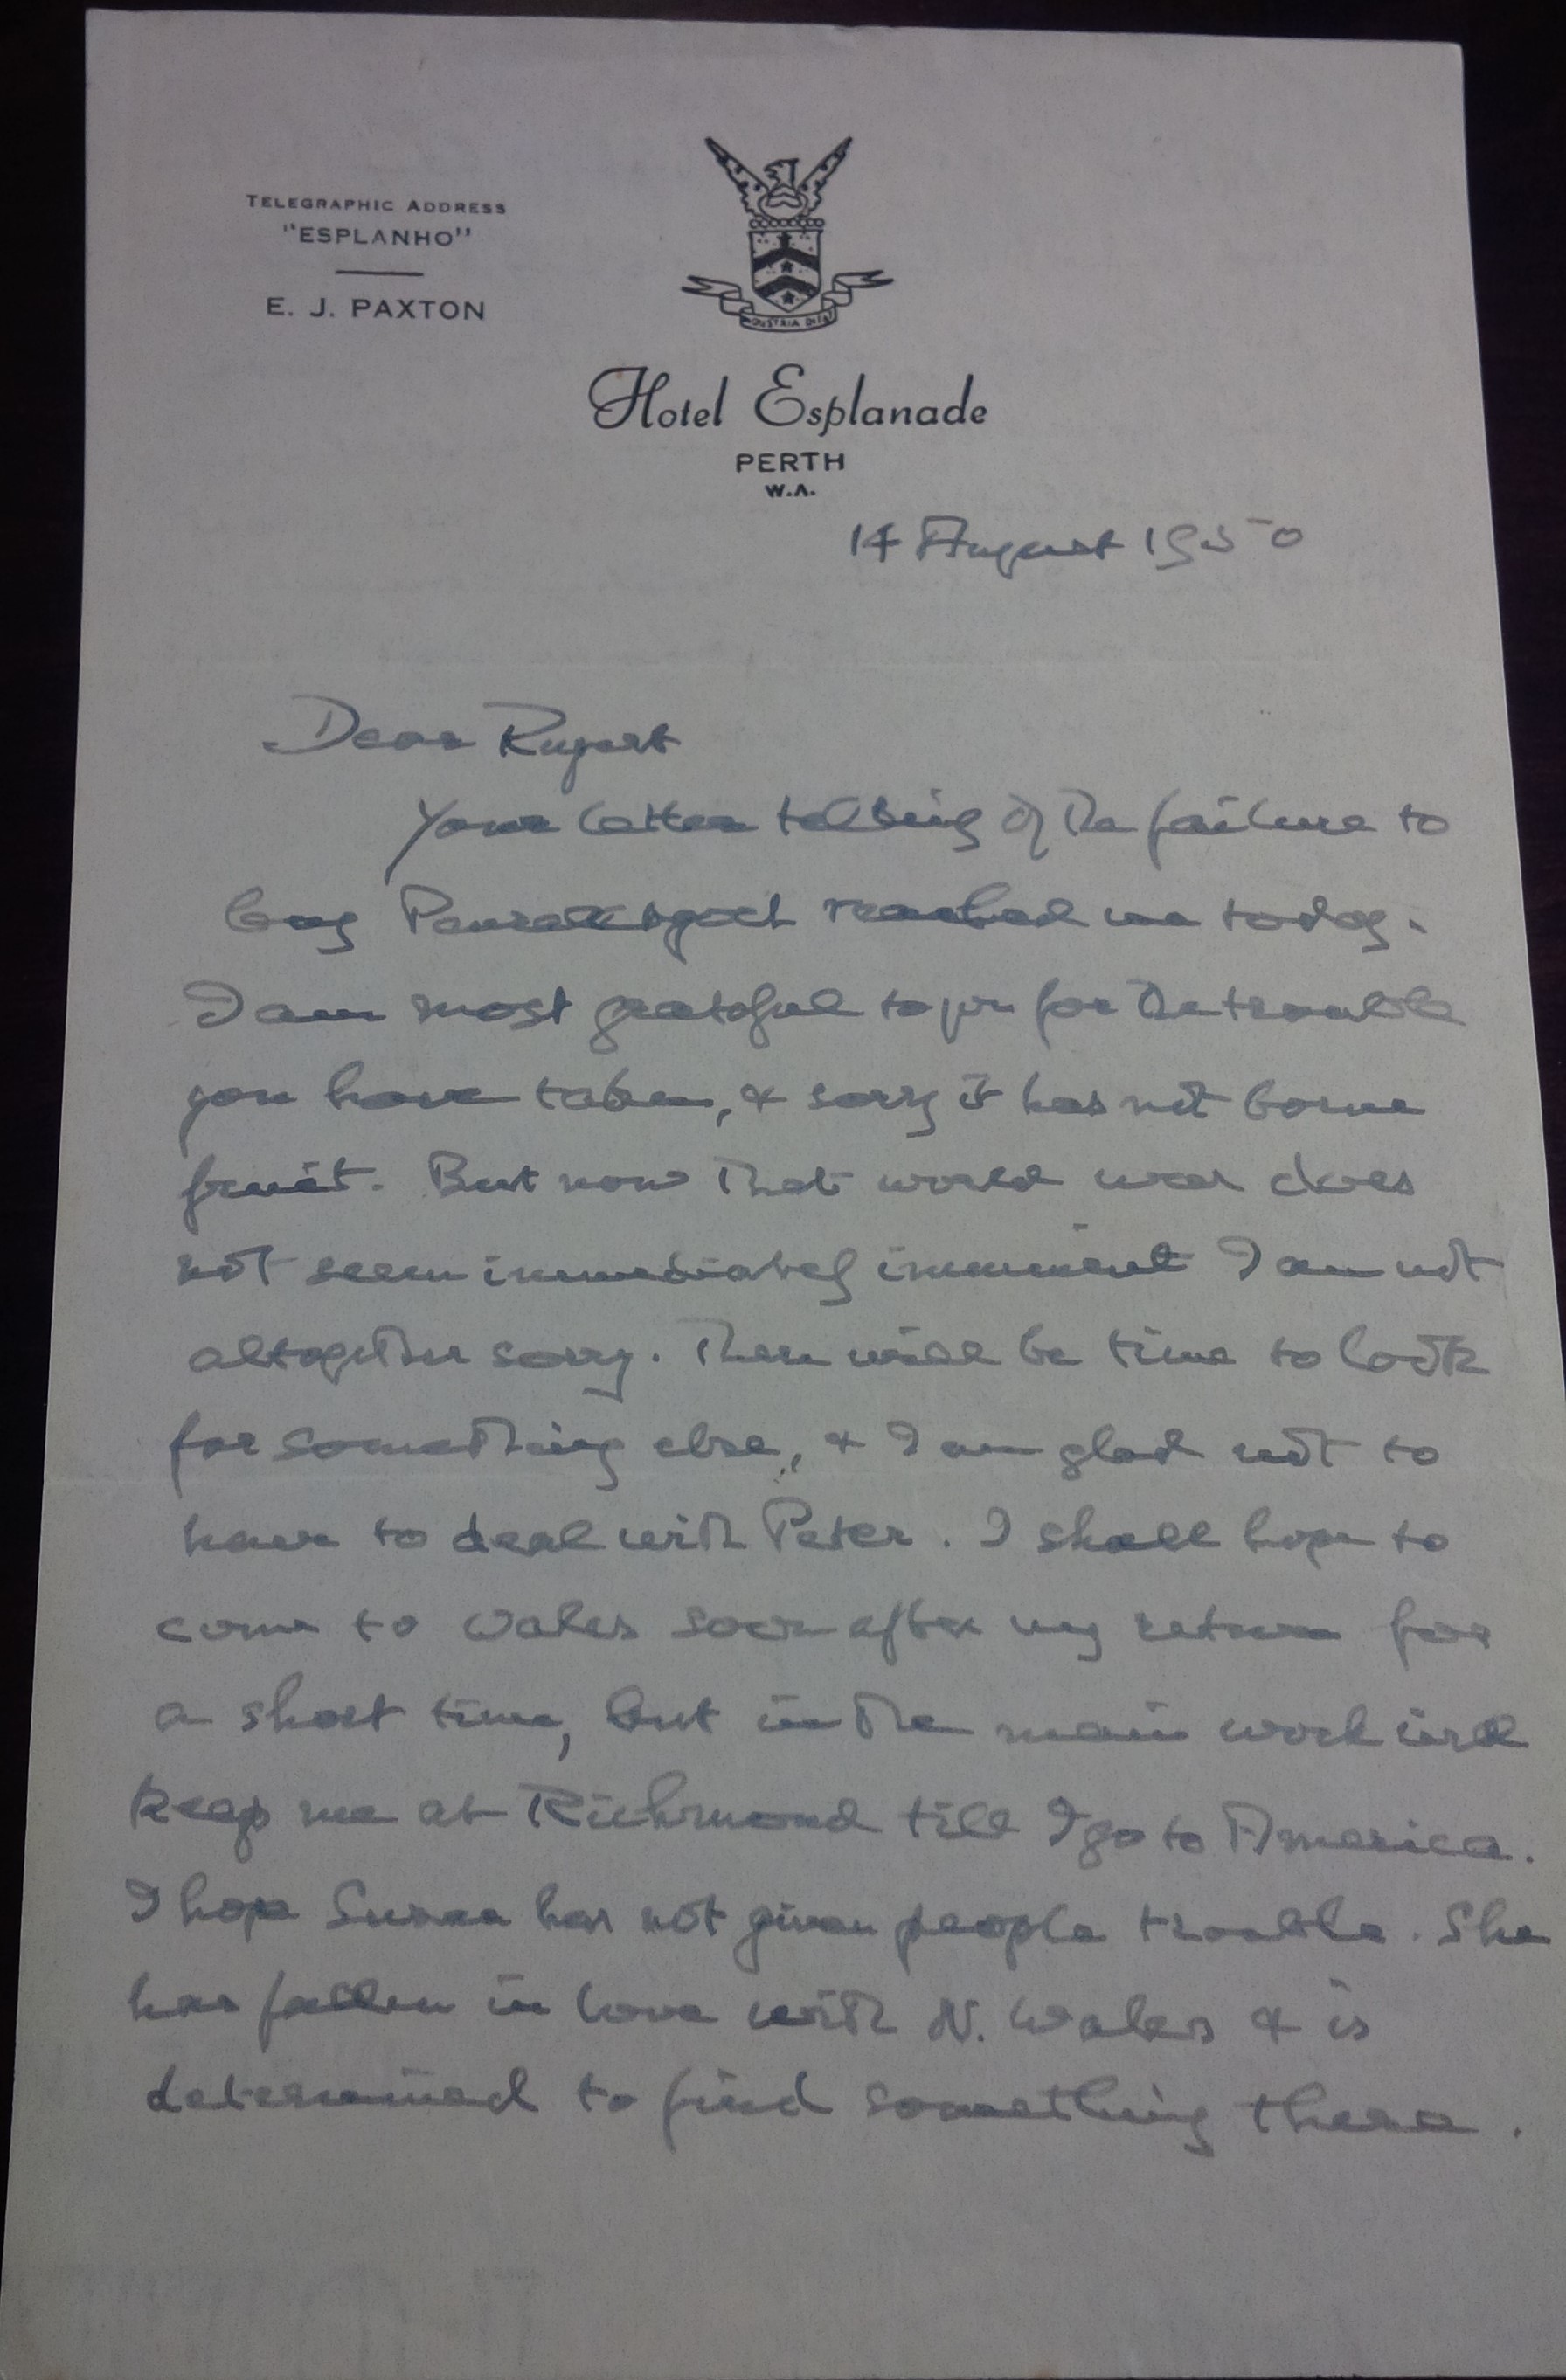 TELEGRAPHIC ADDRESS
"ESPLANHO"
E. J. PAXTON
Hotel Esplanade
PERTH
W.A.
14 August 1950
Dear Rupert
Your letter telling of the failure to
buy reached me today.
I am most grateful to you for the trouble
you have taken, & sorry it has not borne
fruit. But now that world war does
not seem immediately imminent I am not
altogether sorry. There will be time to look
for something else, & I am glad not to
have to deal with Peter. I shall hope to
come to Wales soon after my return for
a short time, but in the main work will
keep me at Richmond till I go to America.
I hope Susan has not given people trouble. She
has fallen in love with N. Wales & is
determined to find something there.